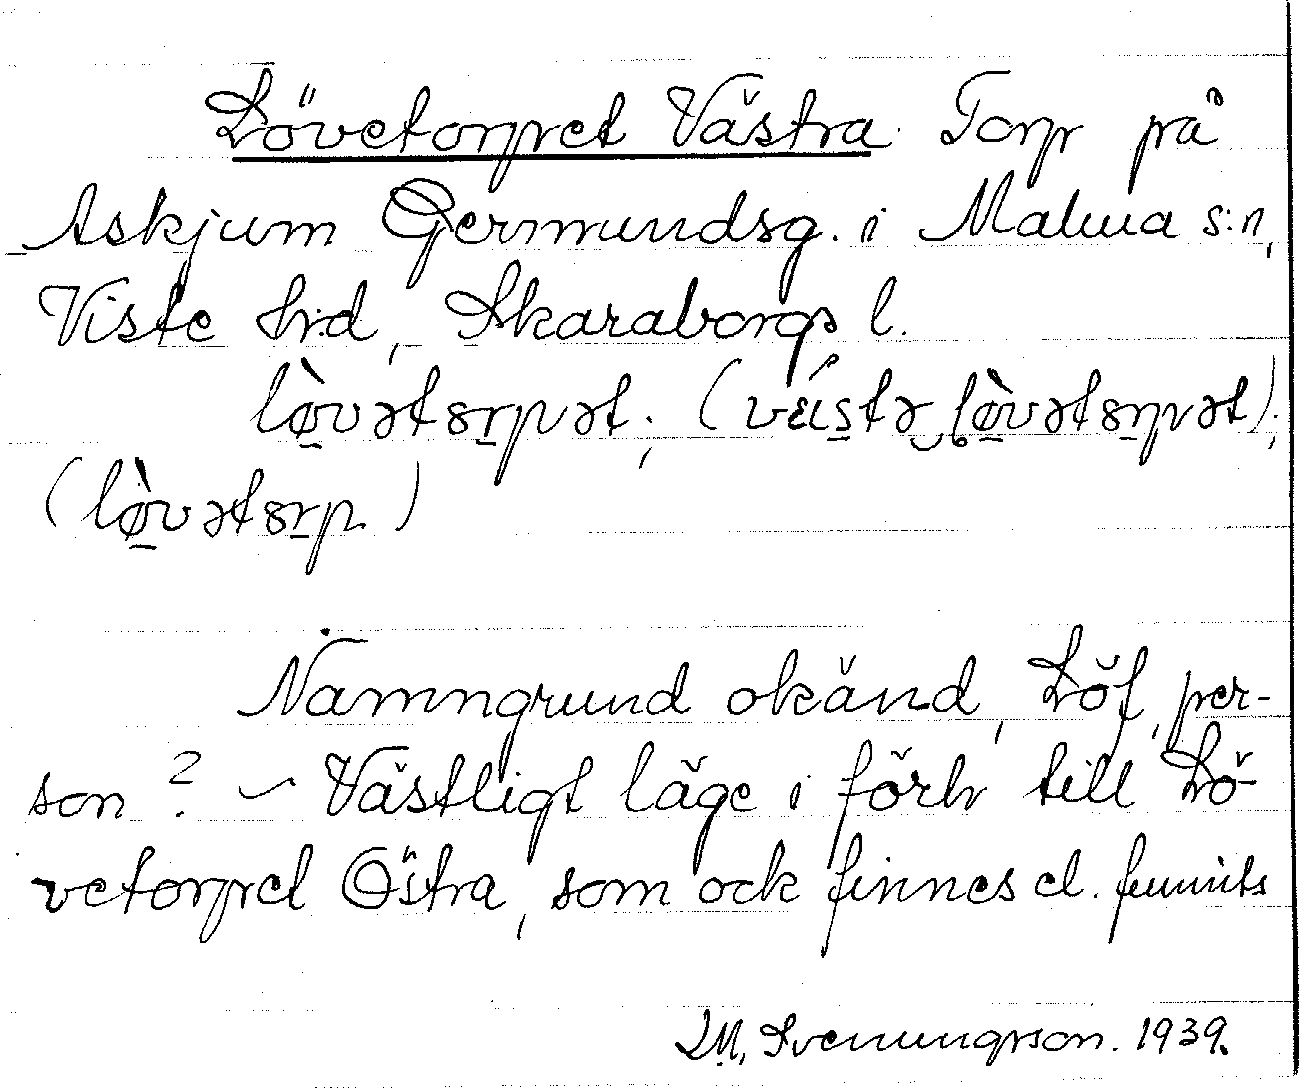 Lövetorpet Västra. Torp på
Askjum Germundsg. i Malma s:n,
Viste hrd, Skaraborgs l.
lø̠̀vətꞩr̠pət; (vɛ́s̠tə lø̠̀vətꞩr̠pət);
(lø̠̀vətꞩr̠p.)
Namngrund okänd, Löf, per-
son? – Västligt läge i förh till Lö-
vetorpet Östra, som ock finnes el. funnits
Svenungsson. 1939.